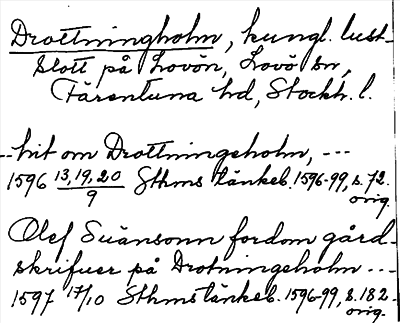 Drottningholm, kungl. lust-
slott på Lovön, Lovö sn,
Färentuna hd, Stockh. l.
--hit om Drottningeholm, ---
1596 13,19,20/9 Sthms tänkeb. 1596-99, s. 72.
orig.
Olef Suänsonn fordom gård-
skrifuer på Drotningeholm ---
1597 17/10 Sthms tänkeb. 1596-99, s. 182.
orig.